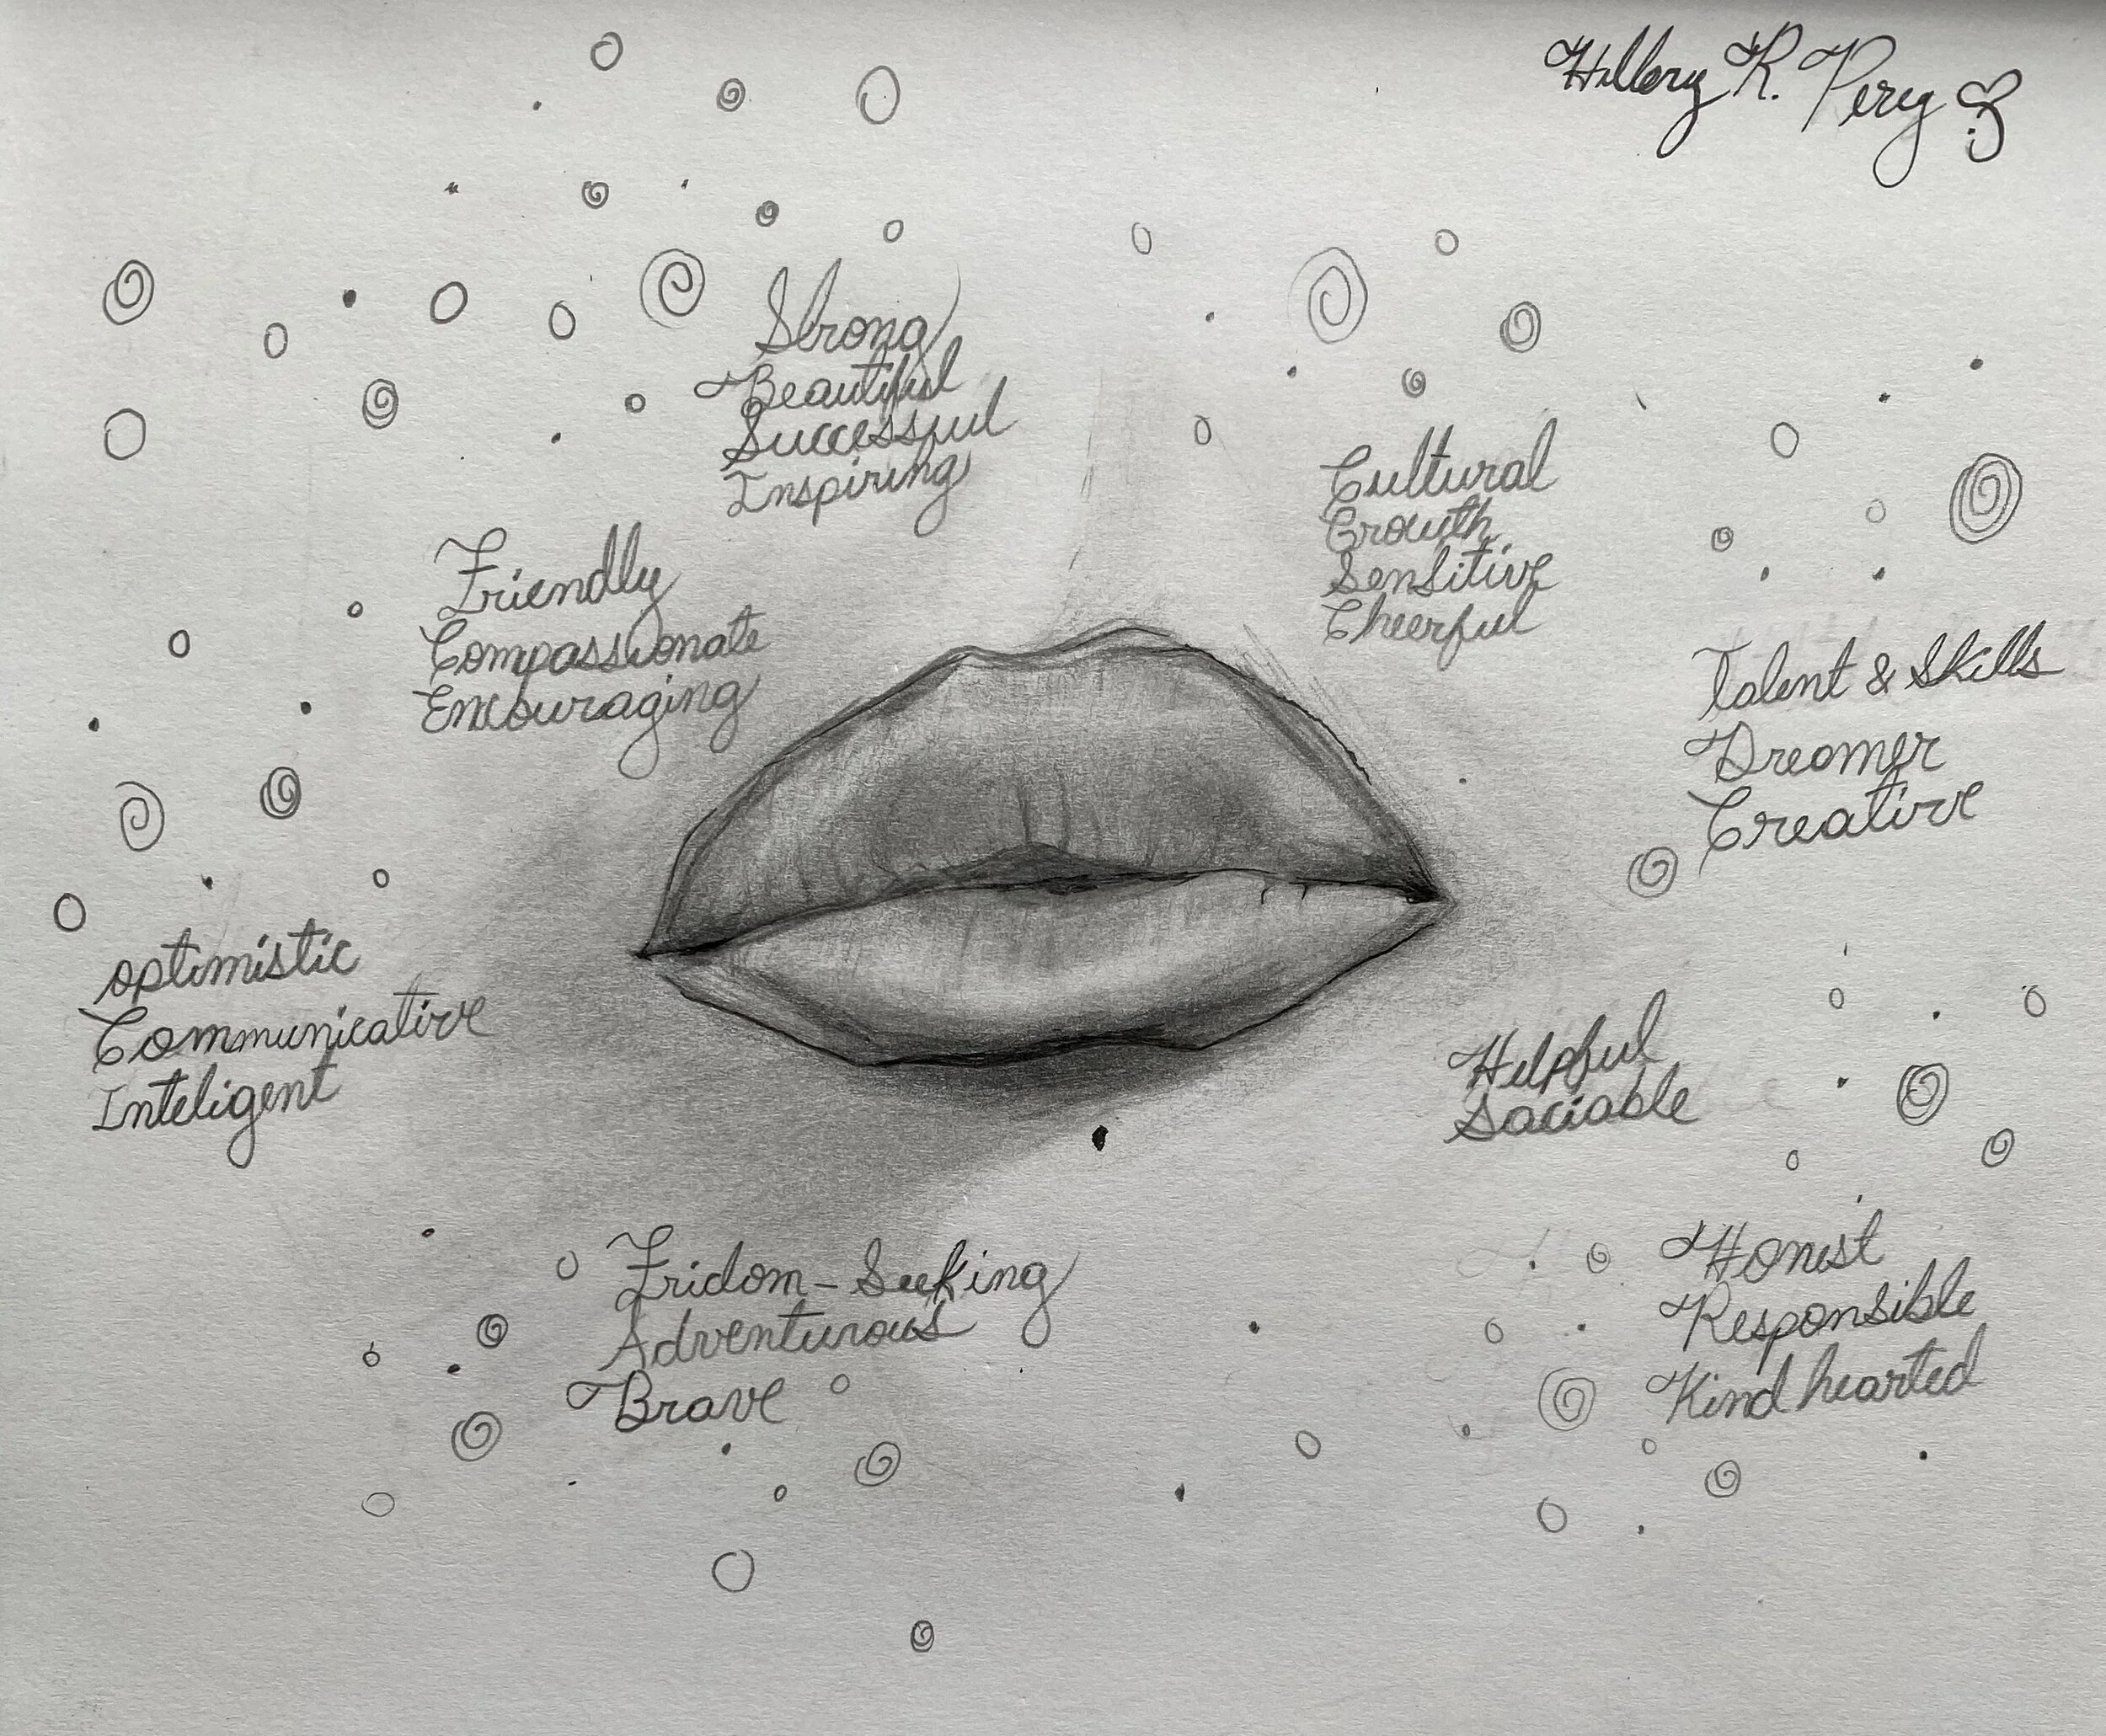 Hillery R. Perez
Strong
Beautiful
Successful
Inspiring
Cultural
Growth
Sensitive
Cheerful
Friendly
Compassionate
Encouraging
Talent & Skills
Dreamer
Creative
optimistic
Communicative
Inteligent
Helpful
Saciable
Fridom-Seeking
Adventurous
Brave
Honest
Responsible
Kind hearted